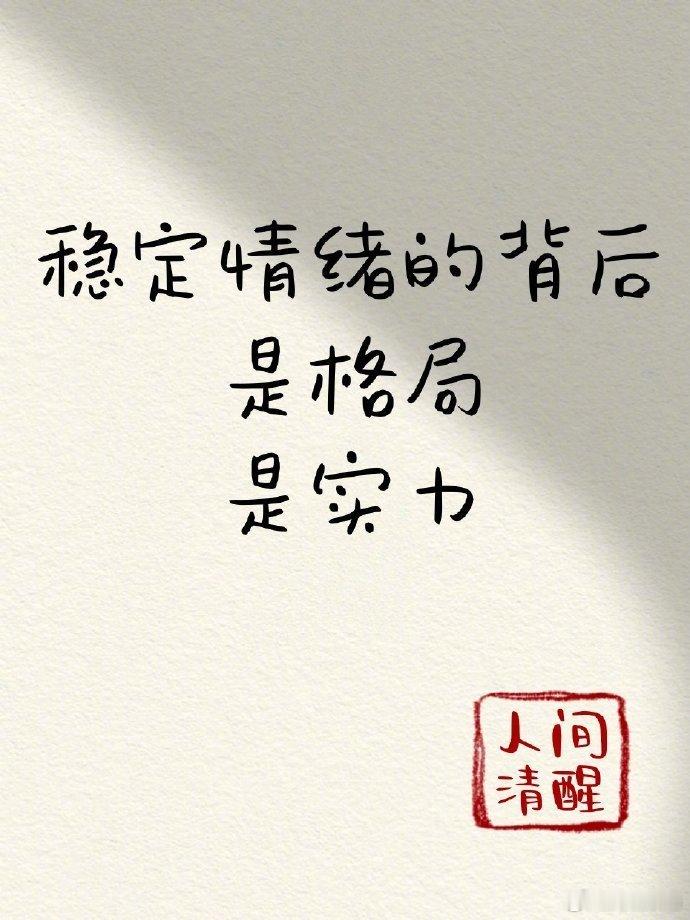 稳定情绪的背后
是格局
是实力
人间
清醒